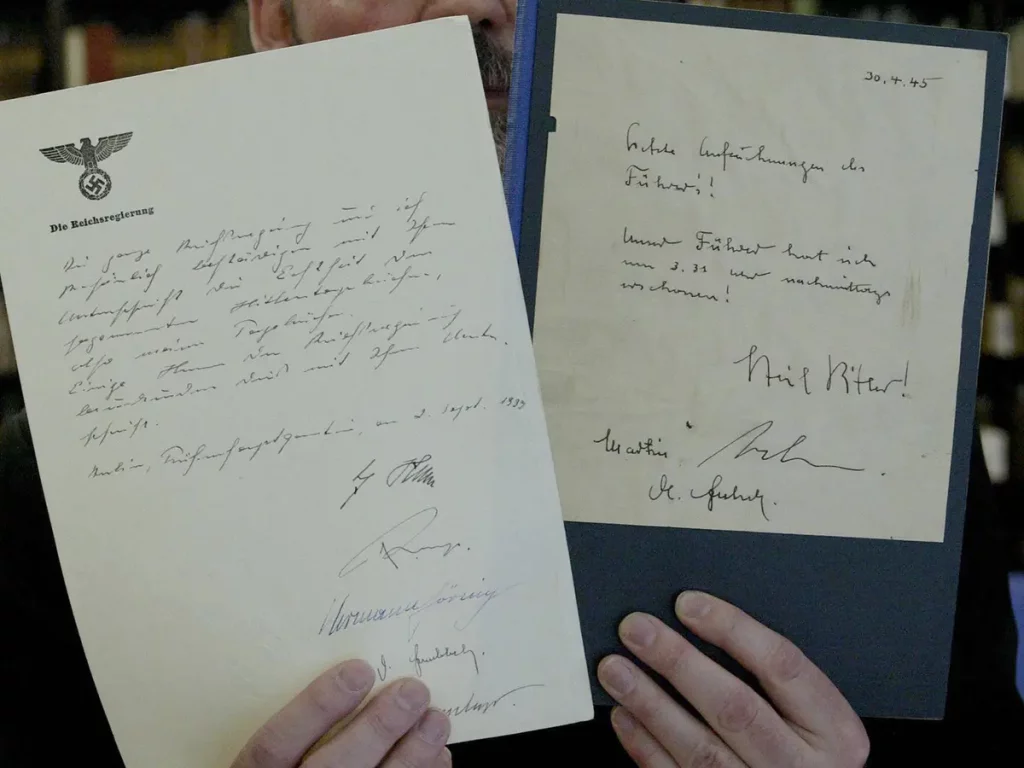 Die Reichsregierung
Die ganze Reichsregierung und ich
persönlich bestätigen mit Ihrer
Unterschrift die Echtheit der
sogenannten Hitlertagebücher,
also meiner Tagebücher.
Einige Herren der Reichsregierung
beurkunden dies mit Ihrer Unter-
schrift.
Berlin, Führerhauptquartier, am 2. Sept. 1939
Hermann Göring
30.4.45
Letzte Aufzeichnungen des
Führers!
Unser Führer hat sich
um 3.31 Uhr nachmittags
erschossen!
Heil Hitler!
Martin
Dr. Goebbels.